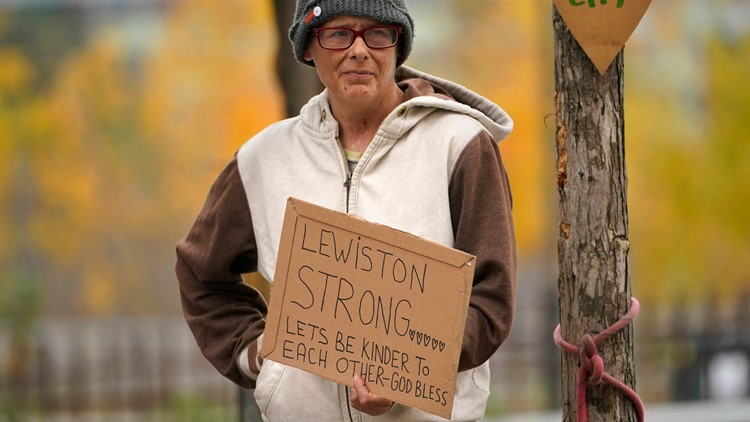 CITY
LEWiSTON
STRONG.♡♡♡♡♡
LETS BE KINDER TO
EACH OTHER-GOD BLESS